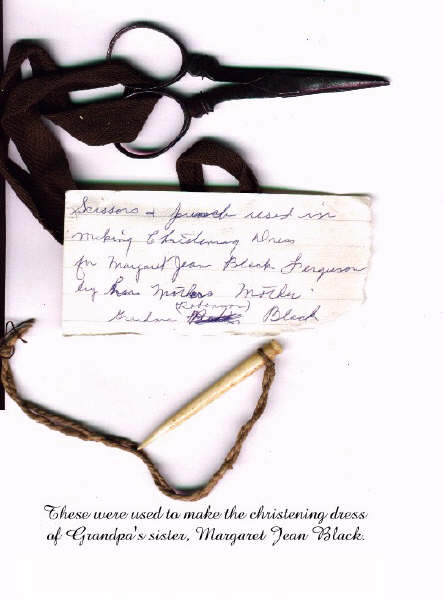 Scissors & punch used in
making Christening Dress
for Margaret Jean Black Ferguson
by her Mothers Mother
(Robinson)
Grandma Black
These were used to make the christening dress
of Grandpa's sister, Margaret Jean Black.